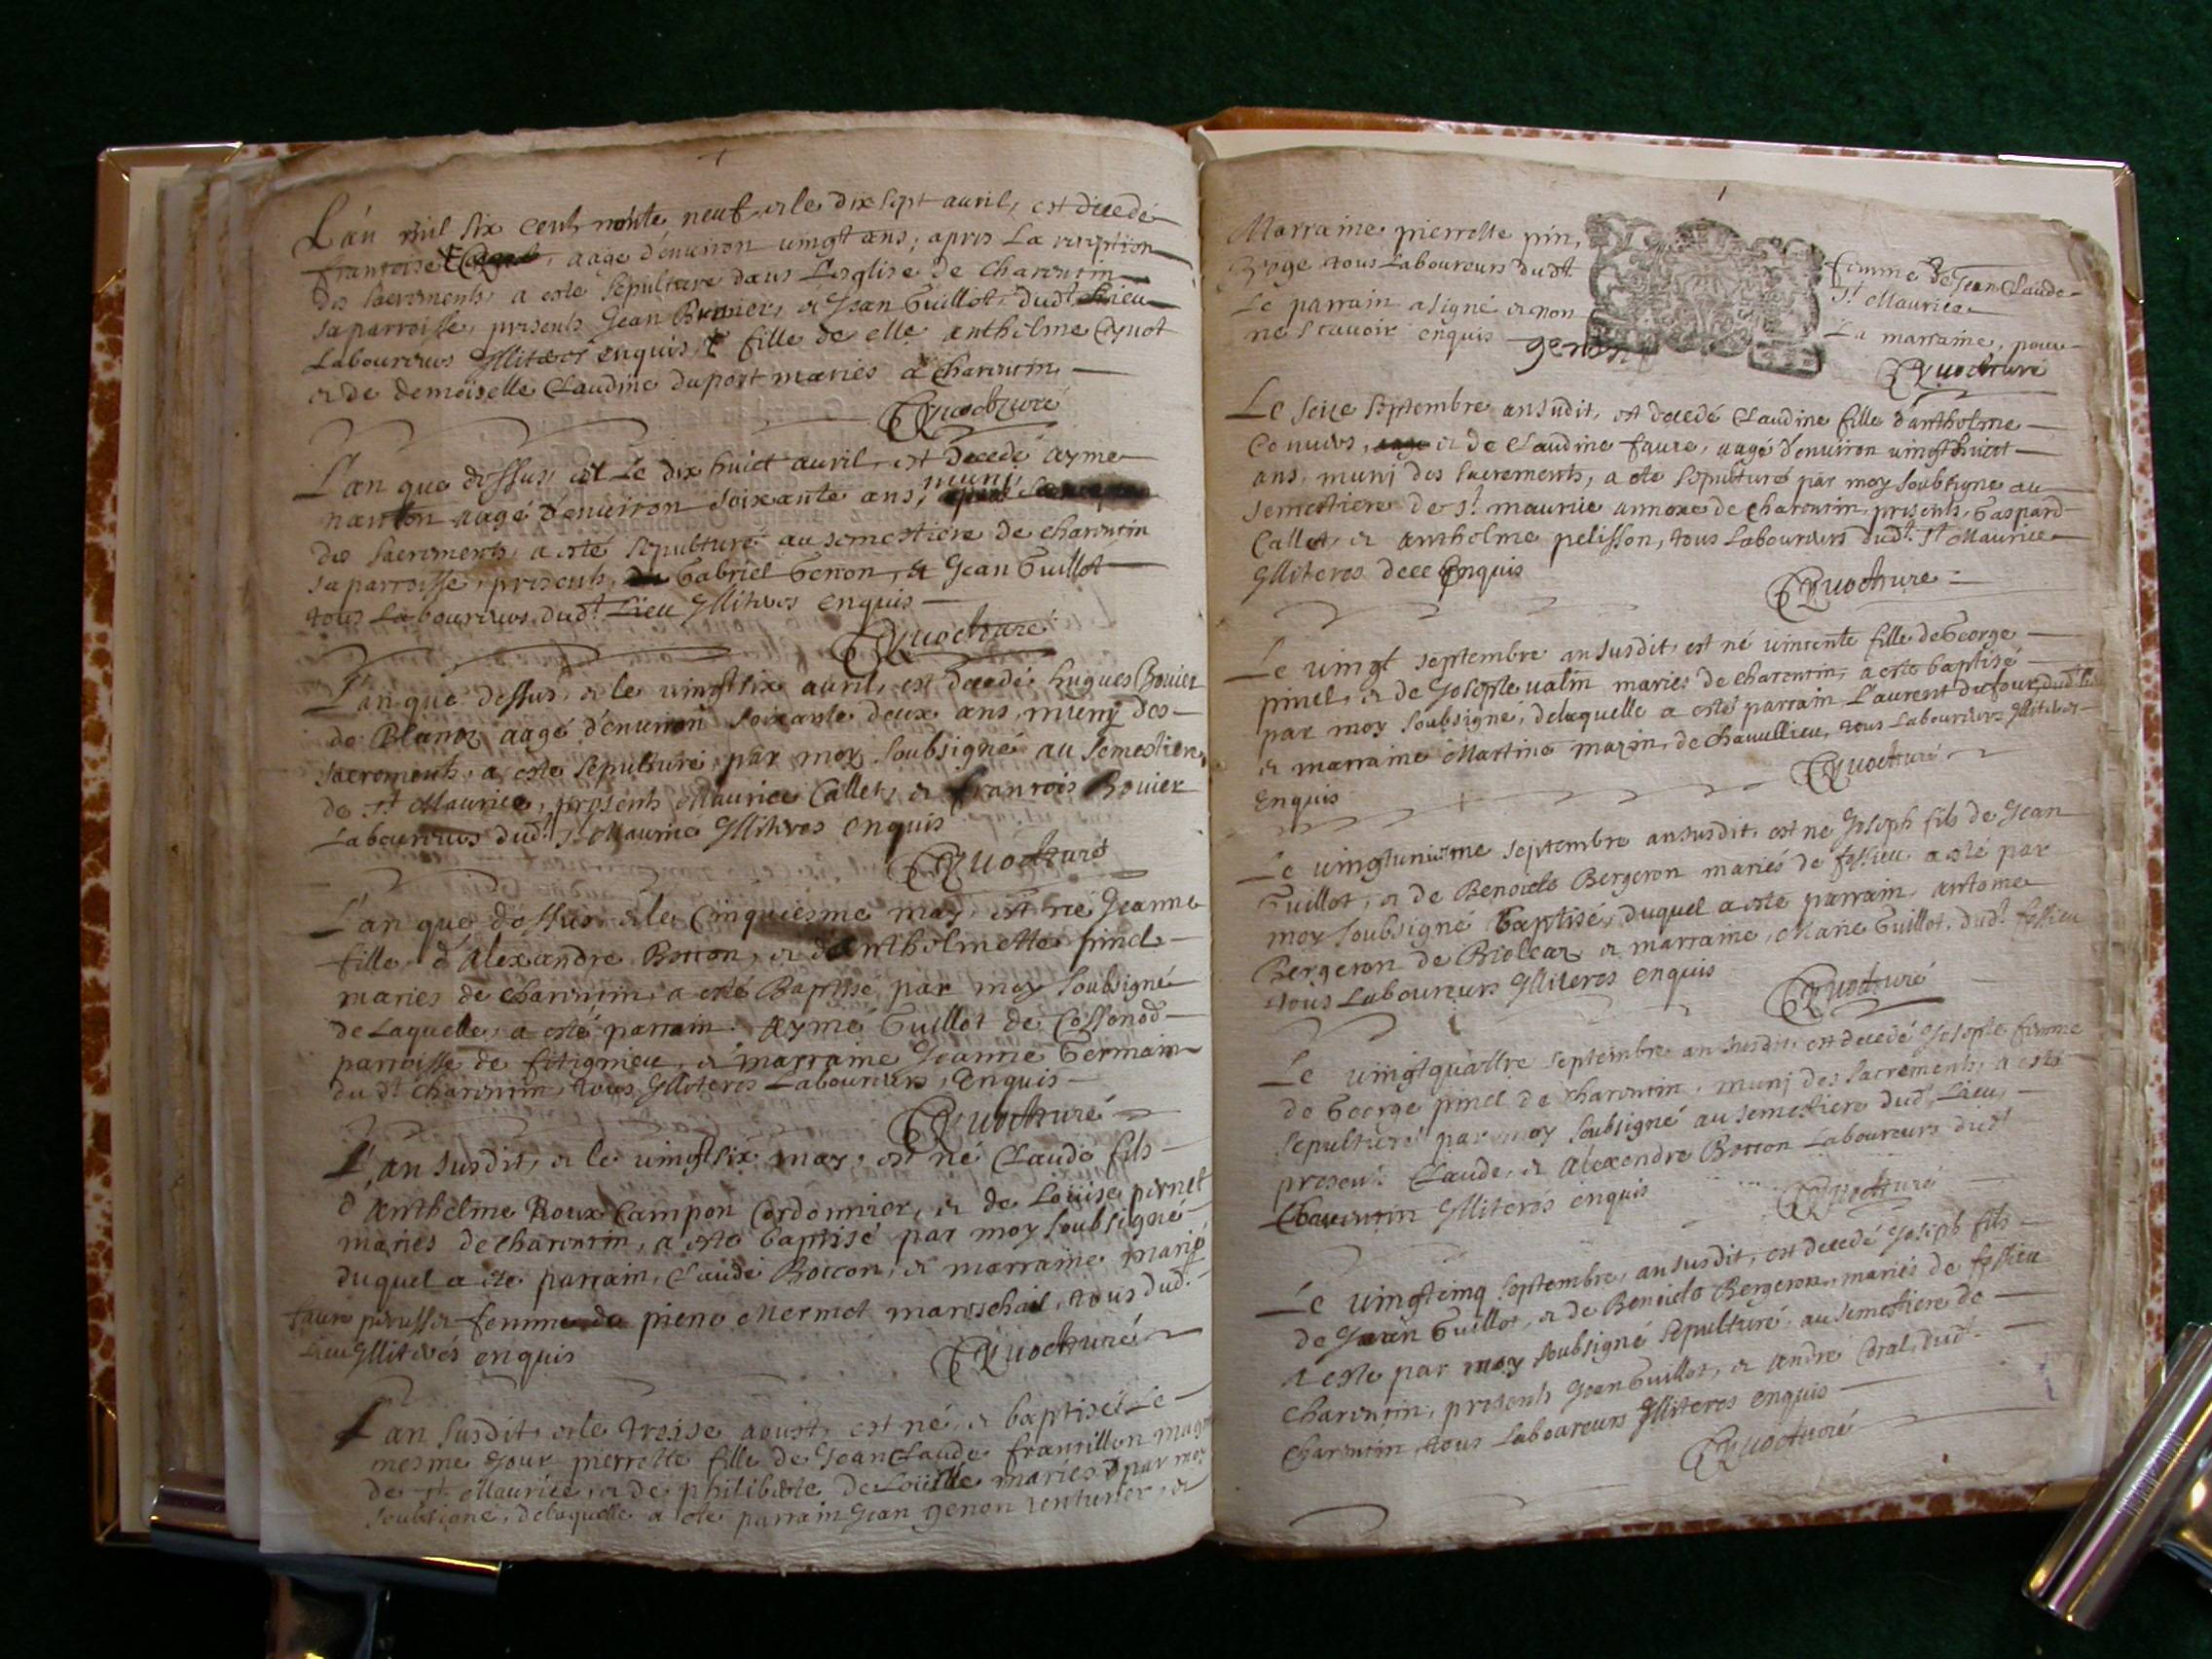 L'an mil six cent nonte neuf et le dix sept avril, est decedé
francoise aage d'environ vingt ans, apres La reception
des sacrements a este sepulture dans L'esglise de charencin
sa parroisse, presents Jean Bouier, et Jean Guillot dudt Lieu
Laboureurs Illiteres enquis, fille de elle anthelme
et de demoiselle Claudine duport maries a charencin
L'an que dessus et Le dix huict avril, est decedé ayme
nanton aagé d'environ soixante ans, munj
des sacrements a esté sepulturé au semestiere de charencin
sa parroisse, presents, Gabriel Genon, et Jean Guillot
tous Laboureurs dudt Lieu Illiteres enquis
L'an que dessus, et le vingtsix avril, est decedé hugues Bouier
de Blanaz aagé d'environ soixante deux ans, munj des
sacrements, a este sepulturé par moy soubsigné au semestiere
de St Maurice, presents Maurice Callet, et francois Bouier
Laboureurs dudt St Maurice Illiteres enquis
L'an que dessus et le Cinquiesme may, est né Jeanne
fille d'Alexandre Boccon, et d'Antholmette pinel
maries de charencin, a esté Baptisé par moy soubsigné
de Laquelle a esté parrain Aymé Guillot de Cossonod
parroisse de fitignieu, et marraine Jeanne Germain
du dt charencin, tous Illiteres Laboureurs, Enquis
L'an susdit, et le vingtsix may, est né Claude fils
d'Anthelme Roux Campon Cordonnier, et de Louise pernet
maries de charencin, a esté baptisé par moy soubsigné
duquel a ete parrain, Claude Boccon, et marraine marie
faure femme de pierre Mermet mareschail, tous dudt
Lieu Illiterés enquis
L'an susdit, et le treise aoust, est né, et baptisé Le
mesme jour pierrette fille de Jean Claude francillon
de St Maurice, et de philiberte de Louille maries par moy
soubsigné, delaquelle a ete parrain Jean genon, et
Marraine pierrette pin, femme de Jean Claude
tous Laboureurs dudt St Maurice
Le parrain a signé et non La marraine, pour
ne scavoir enquis
genon
Le seize septembre an susdit, est decedé Claudine fille d'anthelme
et de Claudine faure, aagé d'environ vingthuict
ans, munj des sacrements, a ete sepulturé par moy soubsigne au
semestiere de St maurice annexe de charencin, presents, Gaspard
Callet, et anthelme pelisson, tous Laboureurs dudt St Maurice
Illiteres enquis
Le vingt septembre an susdit, est né vincente fille de George
pinel, et de Josepte maries de charencin, a este baptisé
par moy soubsigné, delaquelle a esté parrain Laurent dufour, dudt
et marraine Martine mazin, de chavillieu, tous Laboureurs Illiteres
Enquis
Le vingtuniesme septembre an susdit, est né Joseph fils de Jean
Guillot, et de Benoicte Bergeron mariés de fossieu a ete par
moy soubsigné Baptisé, duquel a este parrain, antoine
Bergeron de Bioleaz, et marraine, Marie Guillot, dudt fossieu
tous Laboureurs Illiteres enquis
Le vingtquattre septembre an susdit est decedé Josepte femme
de George pinel de charencin, munj des sacrements, a este
sepulturé par moy soubsigné au semestiere dudt Lieu,
presents Claude, et Alexendre Boccon Laboureurs dudt
Charencin Illiteres enquis
Le vingtcinq septembre, an susdit, est decedé Joseph fils
de Jean Guillot, et de Benoicte Bergeron, mariés de fossieu
a este par moy soubsigné sepulturé, au semestiere de
charencin, presents Jean Guillot, et andre dudt
Charencin, tous Laboureurs Illiteres enquis